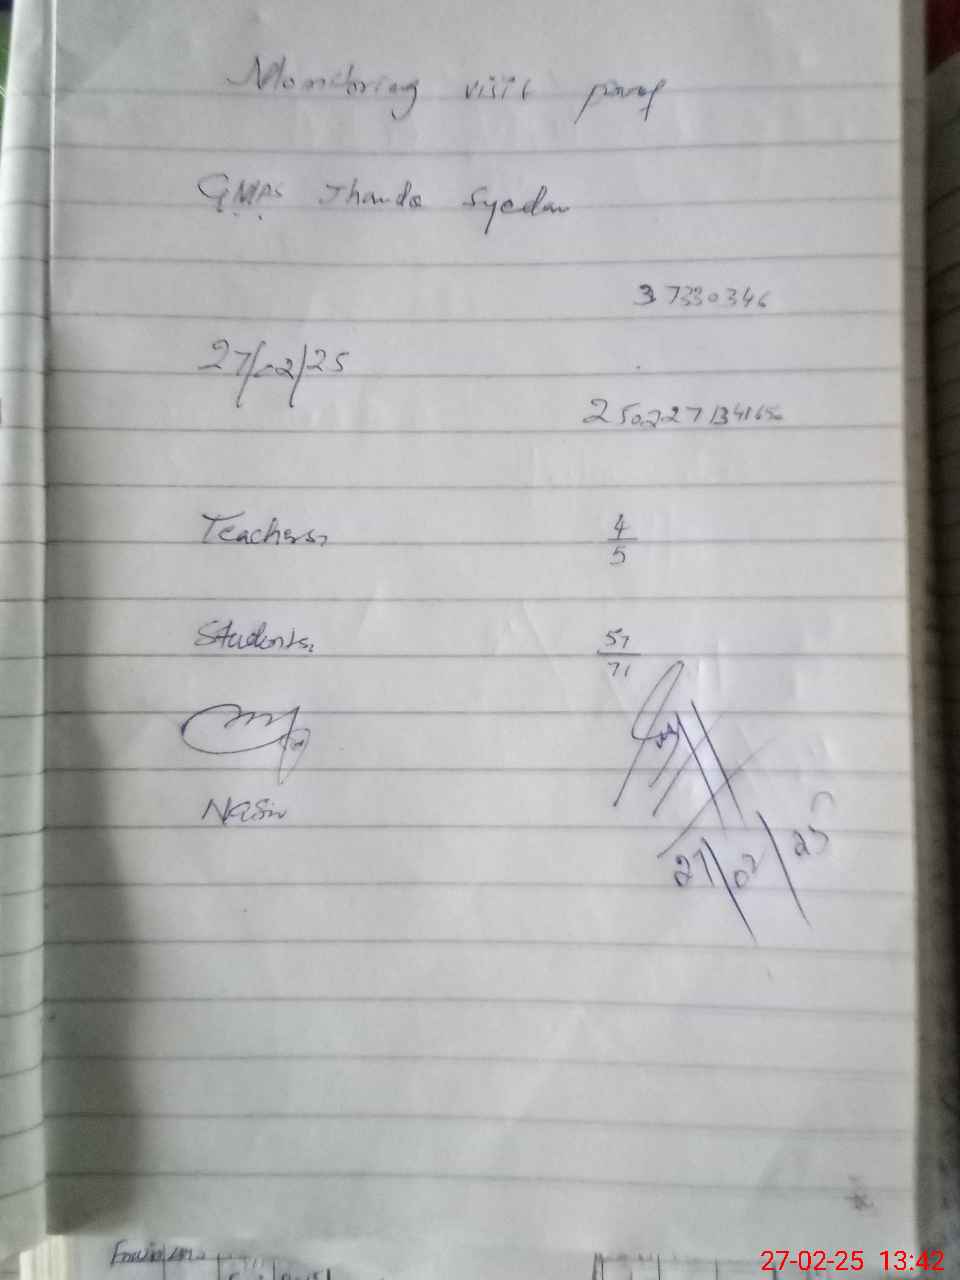 Monitoring visit proof
GMPS Jhanda Syedan
37330346
27/02/25
250227134165
Teachers,
4
5
Students,
57
71
Nasir
27/02/25
27-02-25 13:42